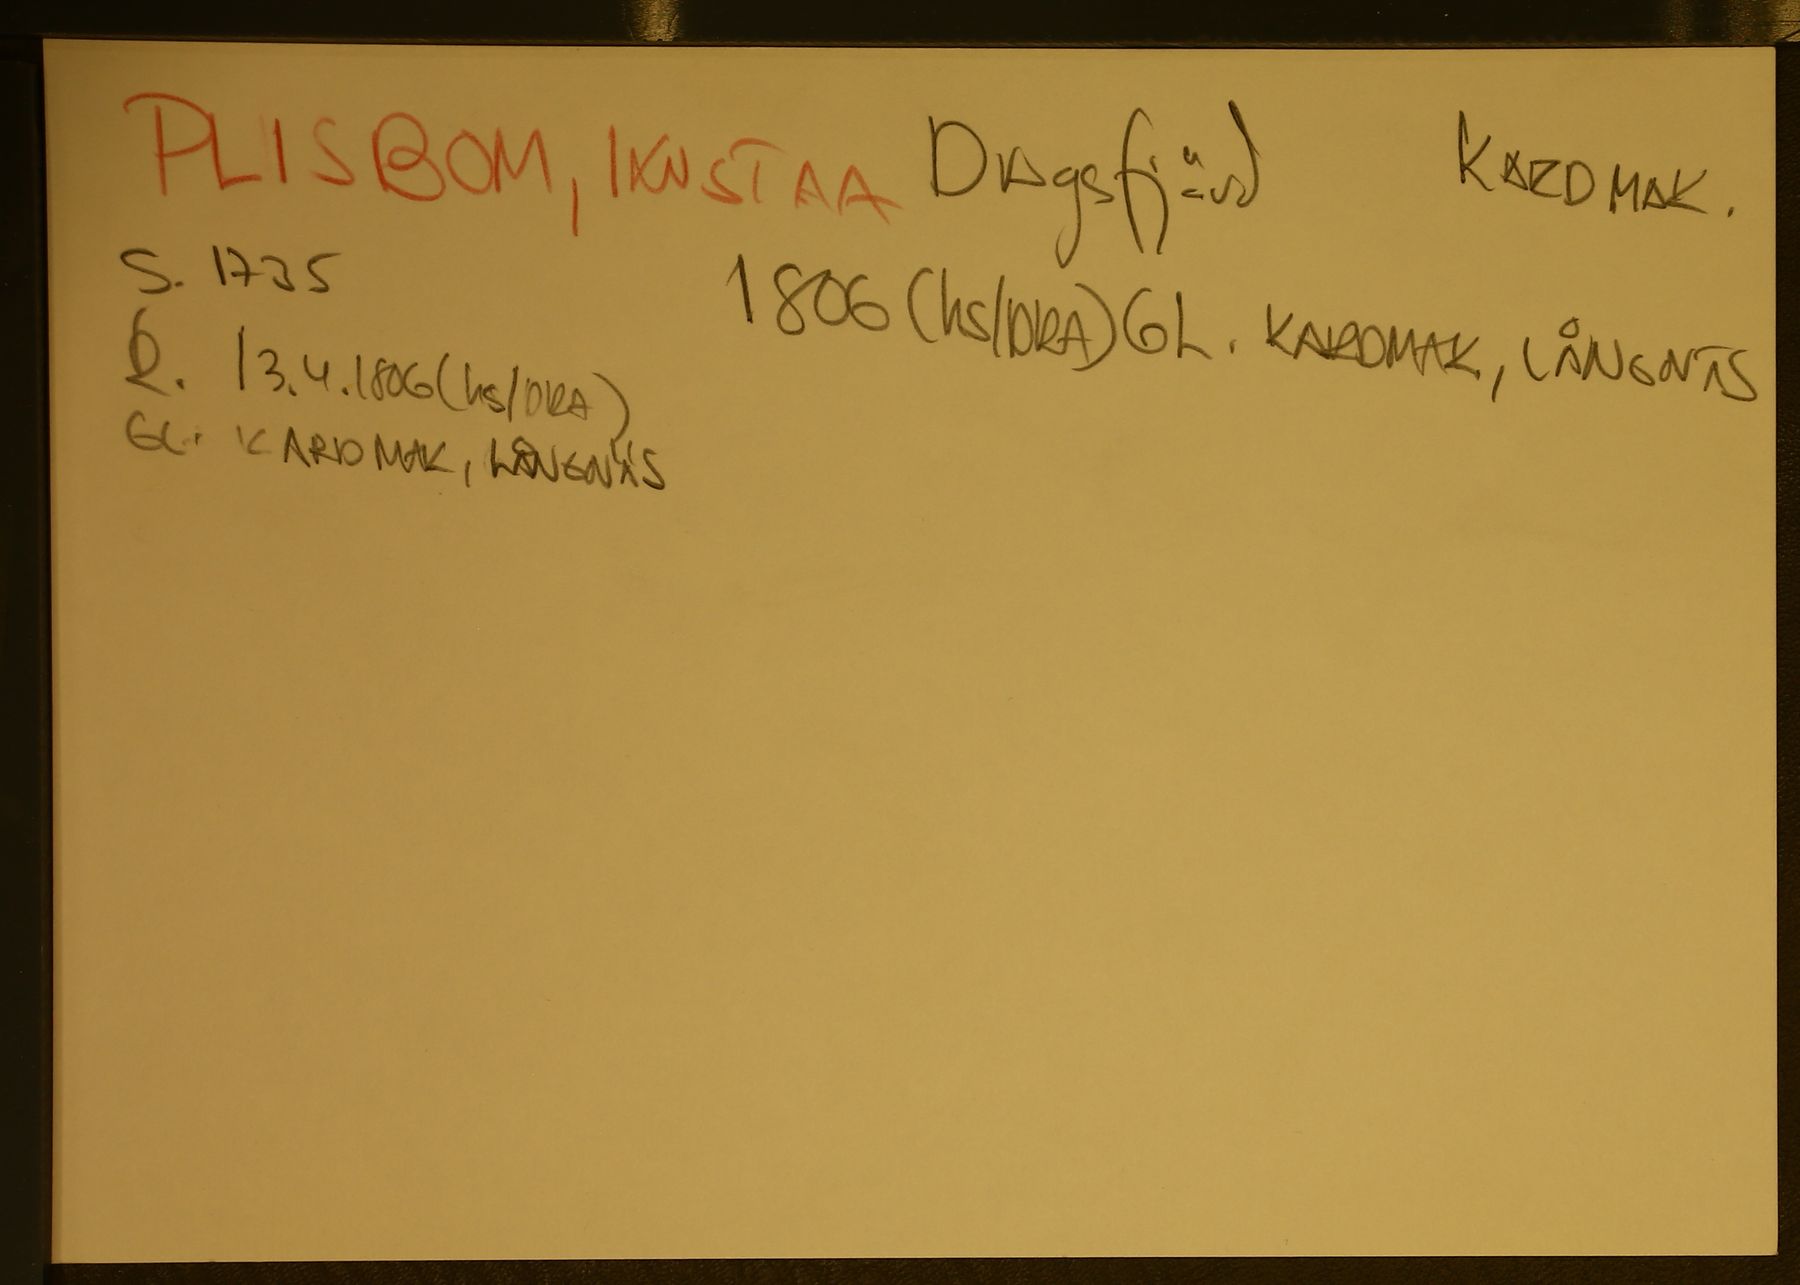 PLISBOM, IKNSTAA Dragsfjärd KARDMAK.
S. 1735
1806 (hs/DRA) GL. KARDMAK, LÅNGNÄS
K. 13.4.1806 (hs/DRA)
GL. KARDMAK, LÅNGNÄS